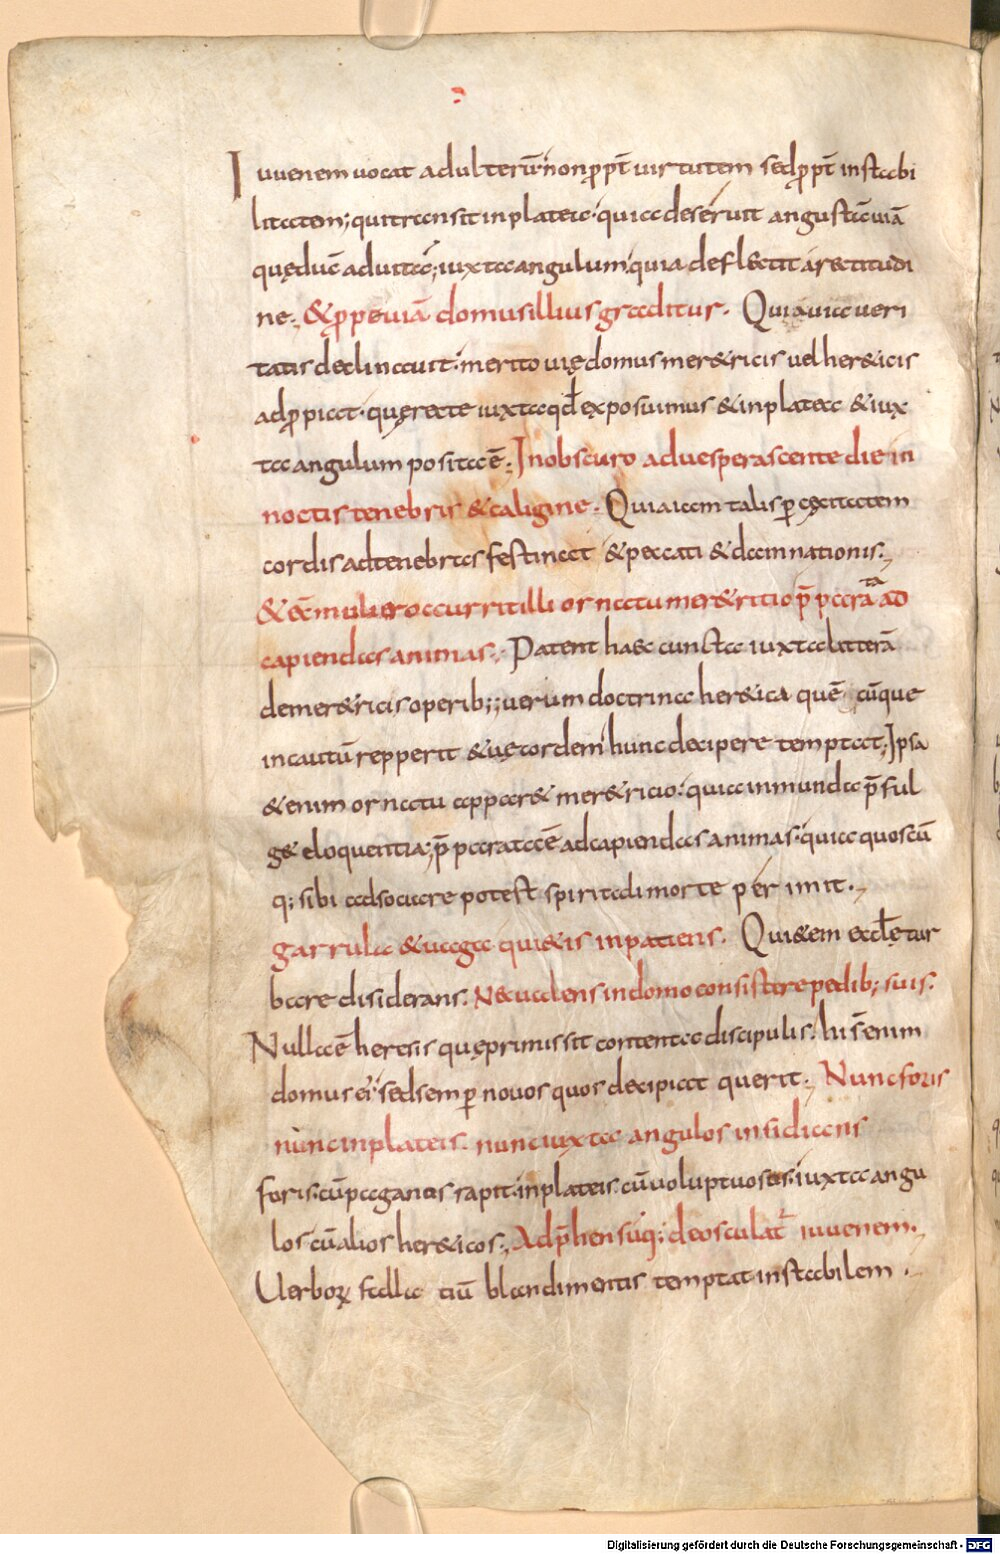 Iuuenem uocat adulterum non ꝓpt̄ uirtutem sed ꝓpt̄ instabi
litatem; qui transit in plateis. quia deseruit angustā uiā
quę ducit ad uitā; iuxta angulum. quia deflectit a rectitudi
ne. & ꝓpe uiā domus illius graditur. Quia uia ueri
tatis declinauit. merito uię domus mer&ricis uel her&icis
adꝓpiat. quę recte iuxta qđ exposuimus & in platea & iux
ta angulum positaē. In obscuro aduesperascente die in
noctis tenebris & caligine. Quia iam talis ꝑ cęcitatem
cordis ad tenebras festinat & peccati & damnationis.
& ecc̄ mulier occurrit illi ornatu mer&ritio p̄parata ad
capiendas animas. Patent haec cuncta iuxta litterā
de mer&ricis operib; uerum doctrina her&ica quē cūque
incautū repperit & uęcordem hunc decipere temptat; Ipsa
&enim ornatu appar& mer&ricio. quia inmunda p̄ful
g& eloquentia; p̄parata ē ad capiendas animas. quia quoscū
q; sibi adsociare potest spiritali morte perimit.
garrula & uaga qui&is inpatiens. Qui&em eccl̄ę tur
bare disiderans. Nec ualens in domo consistere pedib; suis.
Nulla ē heresis quę primis sit contenta discipulis. hi s̄ enim
domus ei; sed semꝑ nouos quos decipiat querit. Nunc foris
nunc in plateis. nunc iuxta angulos insidians
foris. cū paganis sapit. in plateis. cū uoluptuosis. iuxta angu
los cū alios her&icos. Adp̄hensūq; deosculat̄ iuuenem.
Uerboꝝ falla tiū blandimentis temptat instabilem.
Digitalisierung gefördert durch die Deutsche Forschungsgemeinschaft - DFG